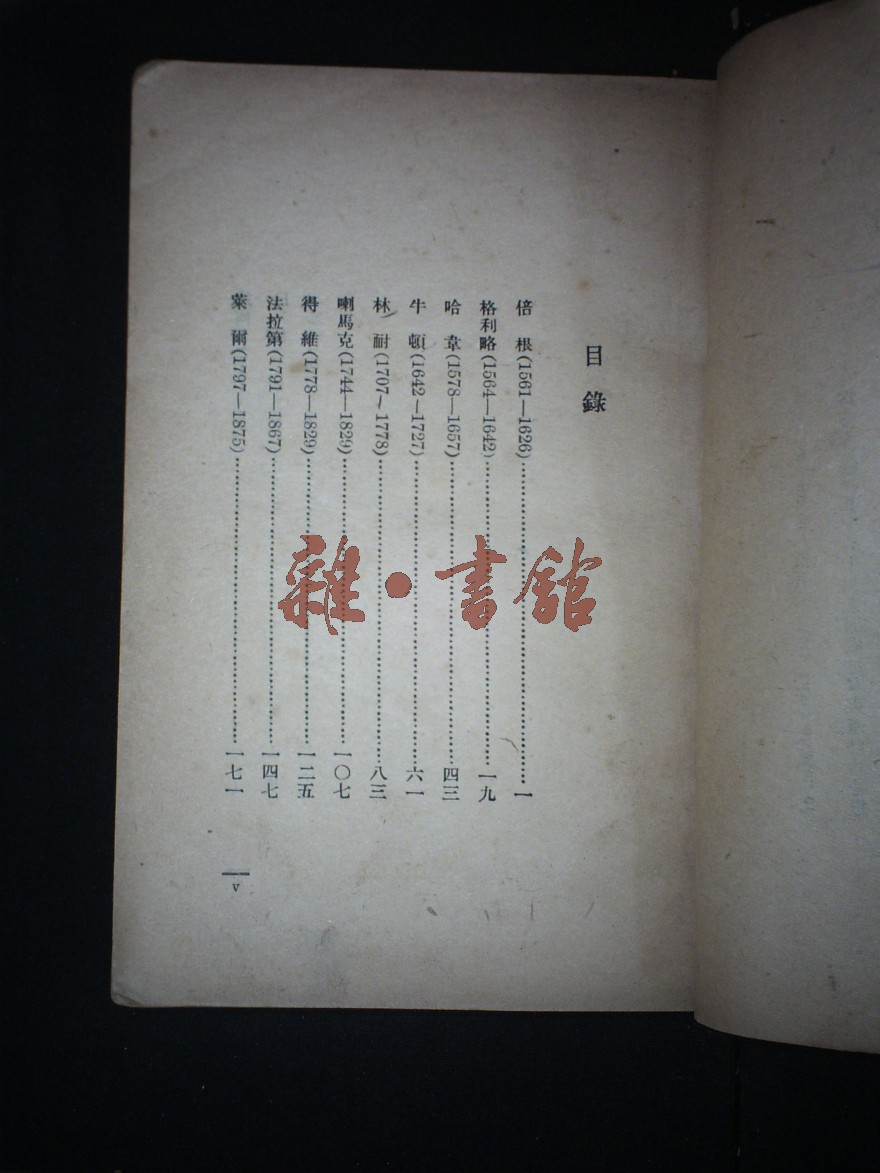 目錄
倍根(1561—1626)……一
格利略(1564—1642)……一九
哈韋(1578—1657)……四三
牛頓(1642—1727)……六一
林耐(1707—1778)……八三
喇馬克(1744—1829)……一〇七
得維(1778—1829)……一二五
法拉第(1791—1867)……一四七
萊爾(1797—1875)……一七一
v
雜·書館